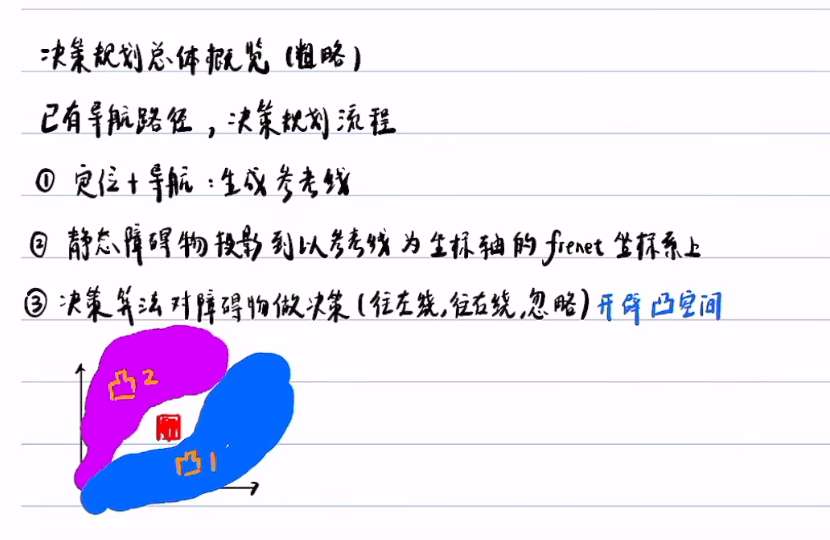 决策规划总体概览(粗略)
已有导航路径,决策规划流程
① 定位+导航:生成参考线
② 静态障碍物投影到以参考线为坐标轴的frenet坐标系上
③ 决策算法对障碍物做决策(往左绕,往右绕,忽略)开辟凸空间
凸2
凸1